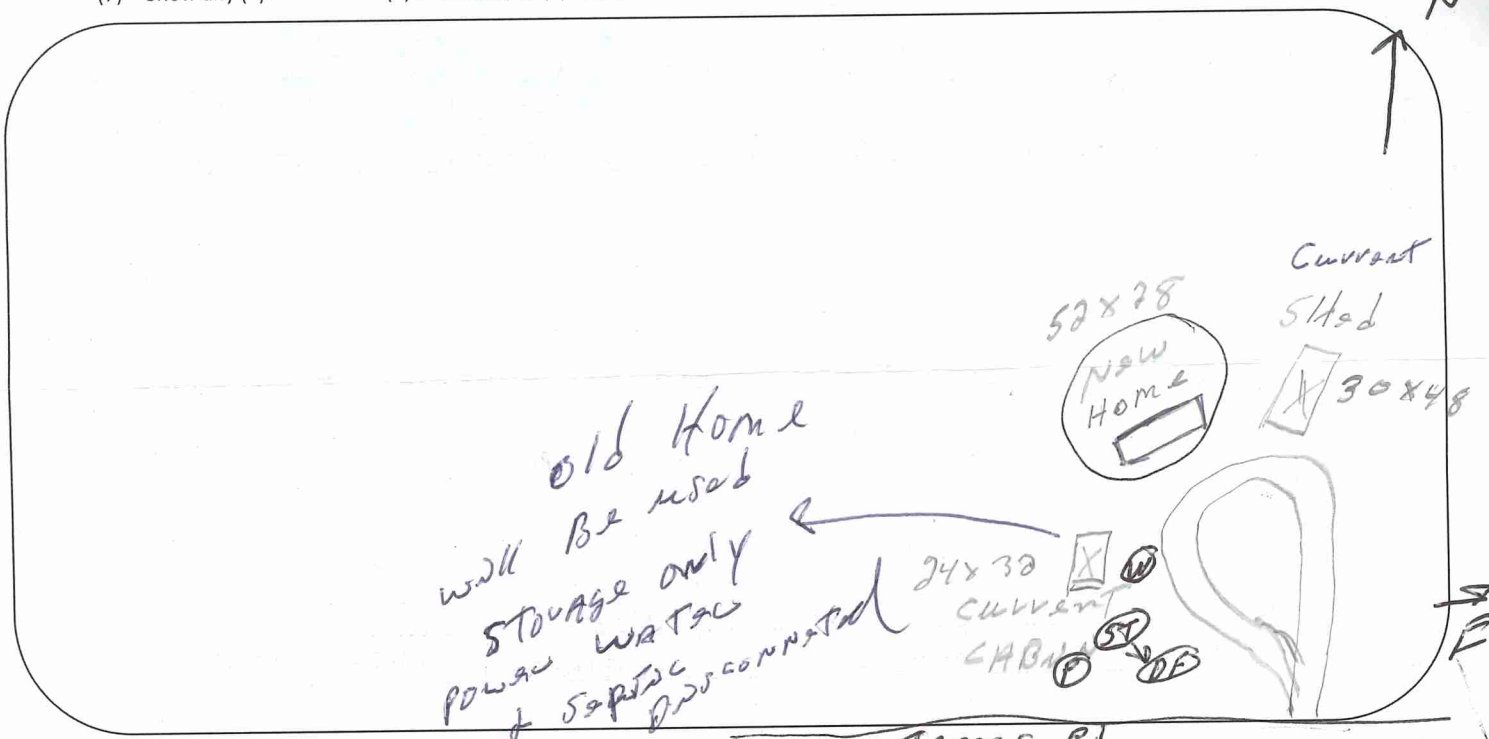 N
Current
SHed
52 x 28
New
Home
30 x 48
old Home
will Be used
STorAge only
power water
& Septic
Disconnected
24 x 32
Current
CABin
W
ST
P
DF
Rd